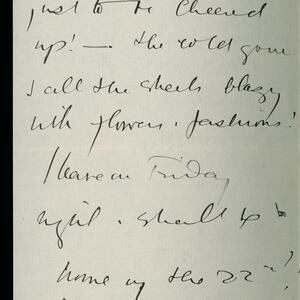 just to be cheered
up! — the cold gone
& all the streets blazy
with flowers & fashions!
I leave on Friday
night & shall be
home by the 22nd!